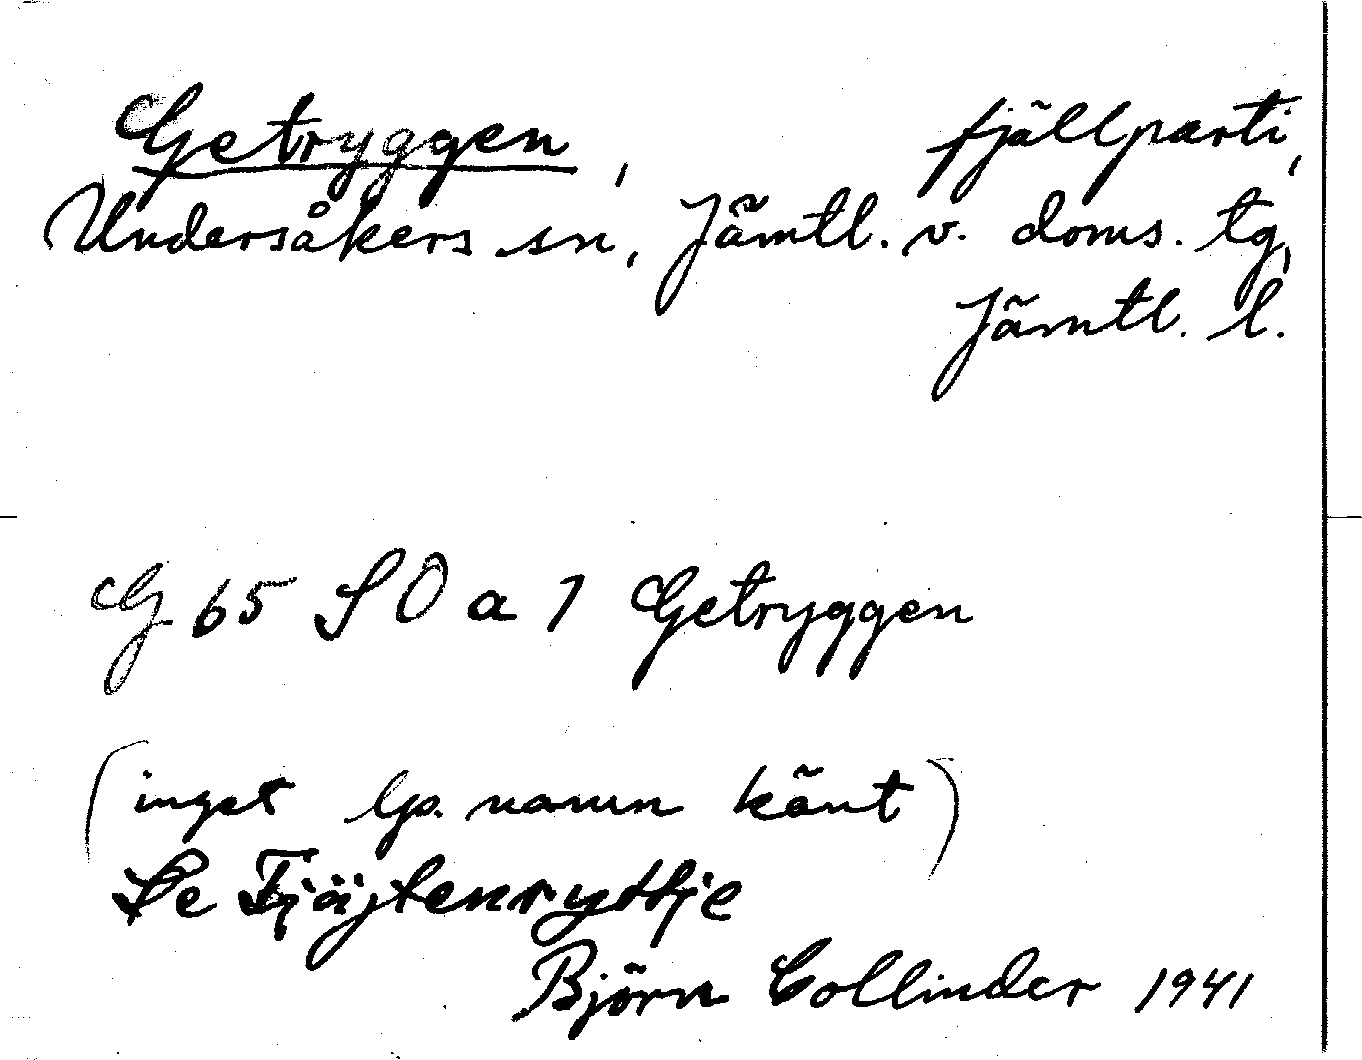 Getryggen, fjällparti,
Undersåkers sn, Jämtl. v. doms. tg,
Jämtl. l.
G 65 SO a 1 Getryggen
(inget lp. namn känt)
Se
Björn Collinder 1941